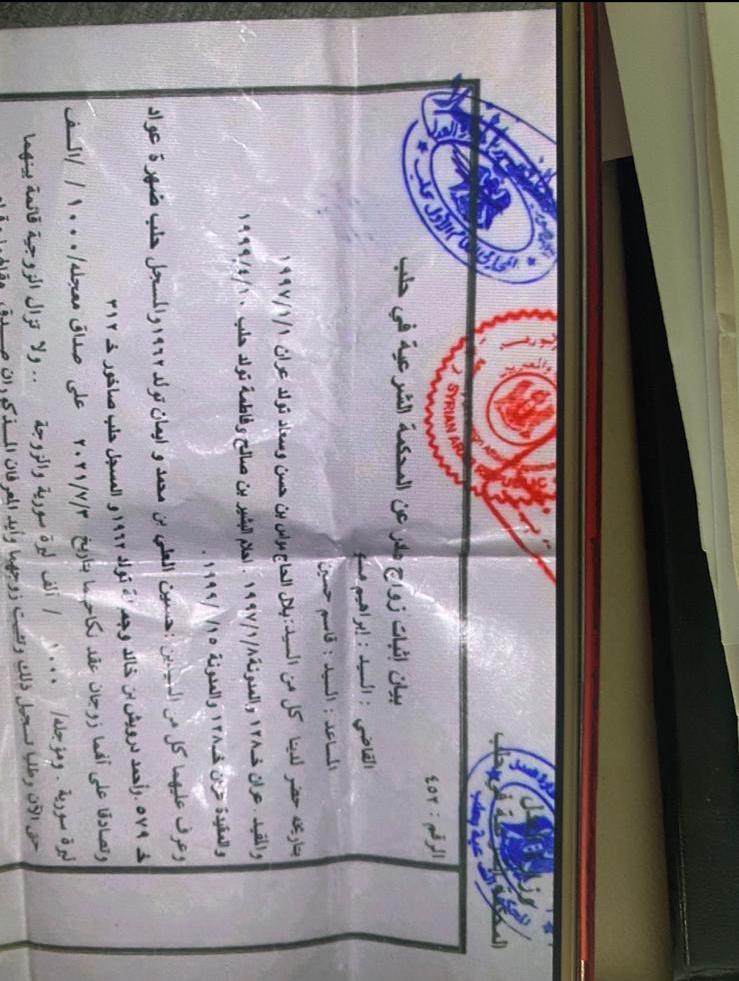 المحكمة الشرعية في حلب
الرقم : ٤٥٢
بيان إثبات زواج صادر عن المحكمة الشرعية في حلب
القاضي : السيد : إبراهيم
المساعد : السيد : قاسم حسين
بتاريخه حضر لدينا كل من السيد : بلال الحاج يونس بن حسن وسعاد تولد عران ١٩٩٧/١/١
والمقيد . عران خـ ١٢٨ والمدونة ١٩٩٧/١/٨ . احلام البشير بن صالح وفاطمة تولد حلب ١٩٩٩/٤/١٠
والمقيدة عران خـ ١٢٨ والمدونة
وعرف عليهما كل من السيدين : حسين العلي بن محمد و ايمان تولد ١٩٦٢ والمسجل حلب ضهرة عواد
خـ ٥٧٩ . وأحمد درويش بن خالد تولد ١٩٦٢ و المسجل حلب صاخور خـ ٣١٢
وتصادقا على أنهما زوجان عقد نكاحهما بتاريخ ٢٠٢١/٧/٣ على صداق معجله/ ١٠٠٠ / ألف
ليرة سورية . ومؤجله/ ١٠٠٠ / ألف ليرة سورية والزوجة .. ولا تزال الزوجية قائمة بينهما
حتى الآن وطلبا تسجيل ذلك وتثبيت زوجهما وأيد المعرفان المذكوران صدق
SYRIAN ARAB